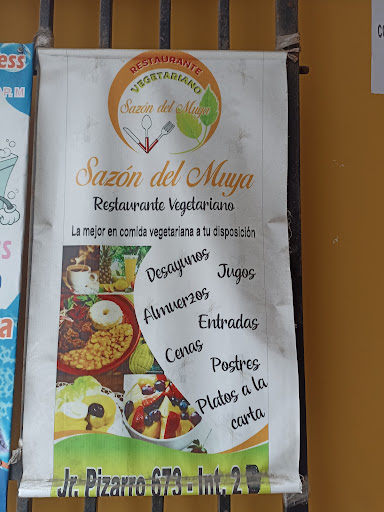 RESTAURANTE
VEGETARIANO
Sazón del Muya
Sazón del Muya
Restaurante Vegetariano
La mejor en comida vegetariana a tu disposición
Desayunos
Jugos
Almuerzos
Entradas
Cenas
Postres
Platos a la
carta
Jr. Pizarro 673 - Int. 2
ess